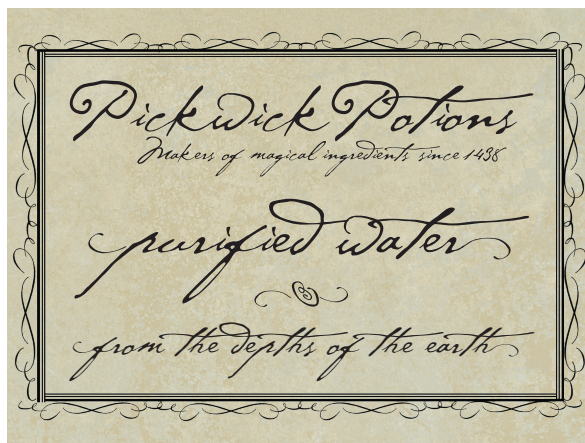 Pickwick Potions
Makers of magical ingredients since 1438
purified water
from the depths of the earth